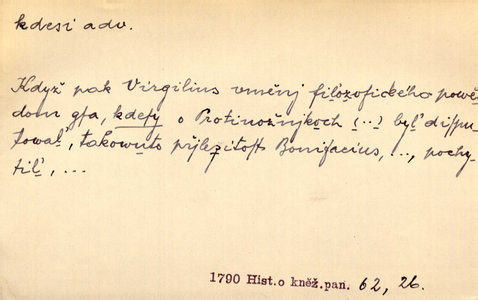 kdesi adv.
Když pak Virgilius uměnj filozofického powě-
dom gsa, kdesy o Protinožnjkoch (..) byľ disspu-
towaľ, takowuto přjležitosť Bonifacius, ..., pochy-
tiľ, ...
1790 Hist.o kněž.pan. 62, 26.